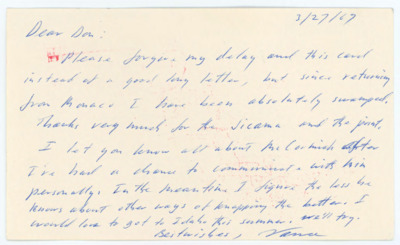 3/27/69
Dear Don:
Please forgive my delay and this card
instead of a good long letter, but since returning
from Monaco I have been absolutely swamped.
Thanks very much for the Jicama and the point.
I let you know all about McCormick after
I've had a chance to communicate with him
personally. In the meantime I figure the less he
knows about other ways of knapping the better. I
would love to get to Idaho this summer. We'll try.
Best wishes,